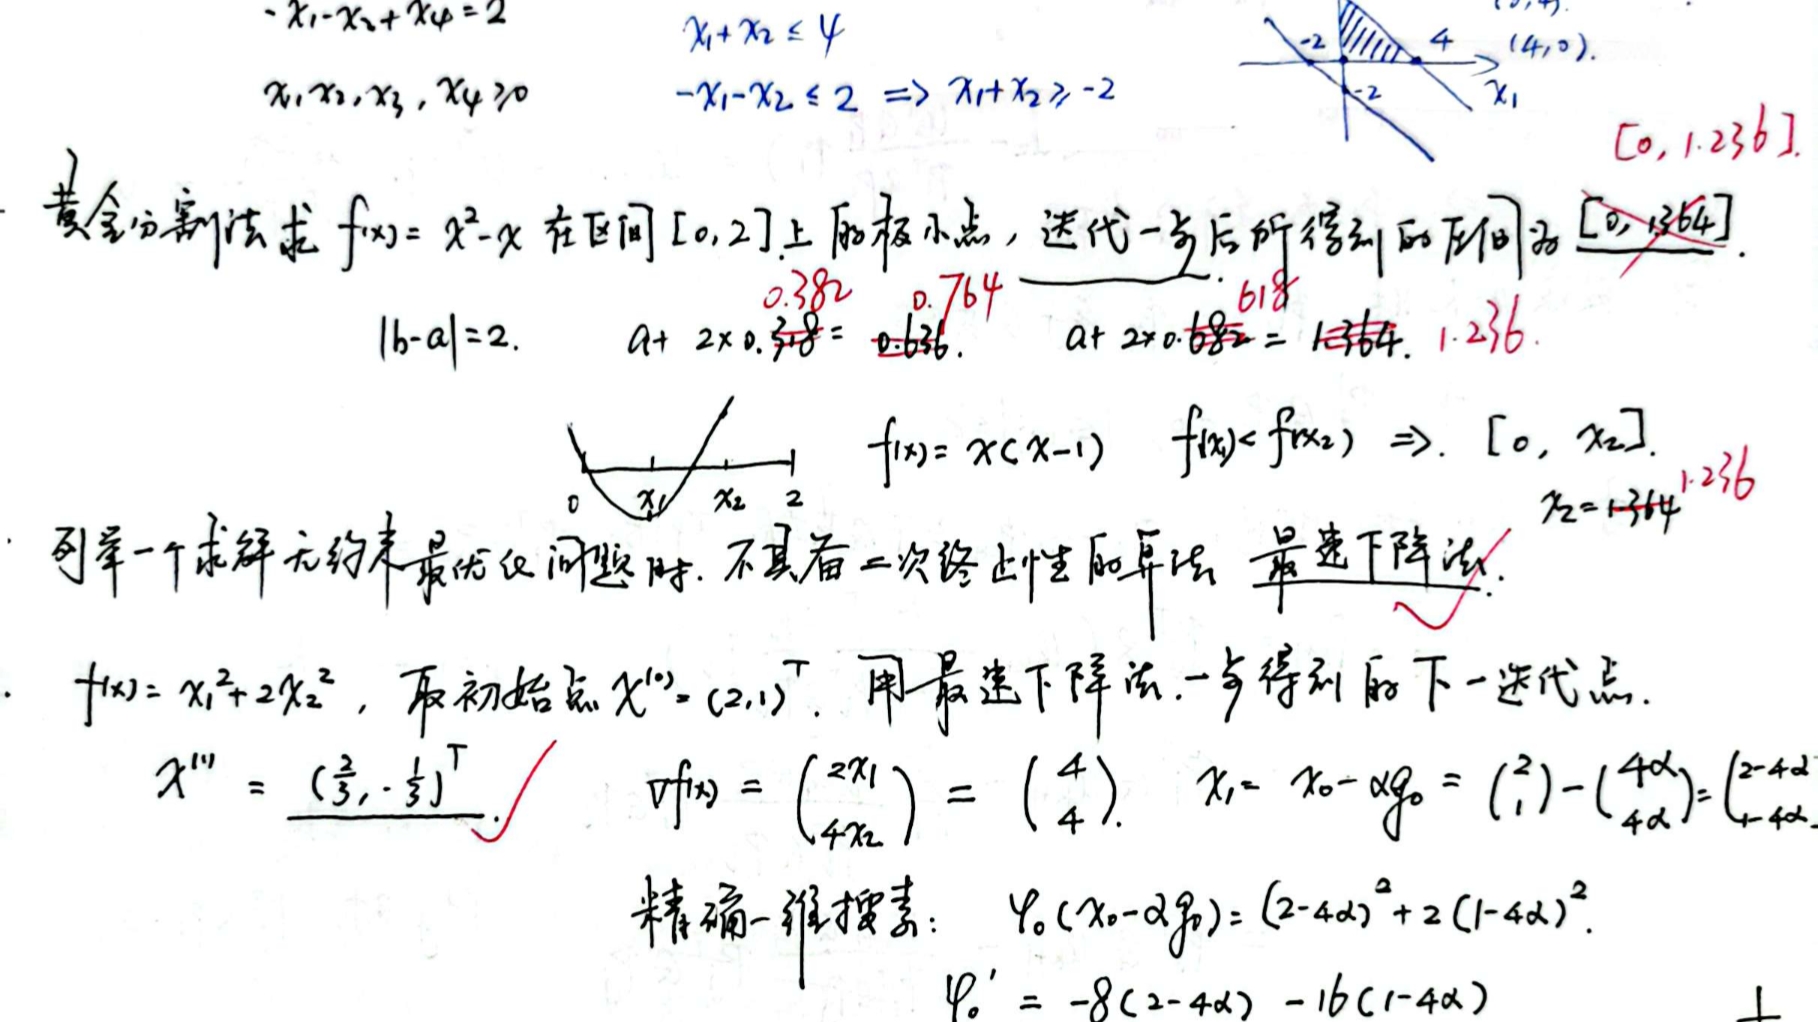 -x₁-x₂+x₄=2
x₁+x₂≤4
-2 4 (4,0).
x₁,x₂,x₃,x₄≥0
-x₁-x₂≤2 ⇒ x₁+x₂≥-2
-2 x₁
[0,1.236].
黄金分割法求 f(x)=x²-x 在区间[0,2]上的极小点，迭代一步后所得到的区间为 [0,1.364].
0.382 0.764 618
|b-a|=2. a+2×0.318=0.636. a+2×0.682=1.364. 1.236.
f(x)=x(x-1) f(x₁)<f(x₂) ⇒. [0, x₂].
0 x₁ x₂ 2
x₂=1.364 1.236
列举一个求解无约束最优化问题时.不具备二次终止性的算法 最速下降法.
f(x)=x₁²+2x₂², 取初始点 x⁽⁰⁾=(2,1)ᵀ. 用最速下降法.一步得到的下一迭代点.
x⁽¹⁾ = (2/3,-1/3)ᵀ. ∇f(x) = (2x₁ 4x₂) = (4 4). x₁=x₀-αg₀=(2 1)-(4α 4α)=(2-4α 1-4α
精确一维搜素: φ₀(x₀-αg₀)=(2-4α)²+2(1-4α)².
φ₀' = -8(2-4α) -16(1-4α)